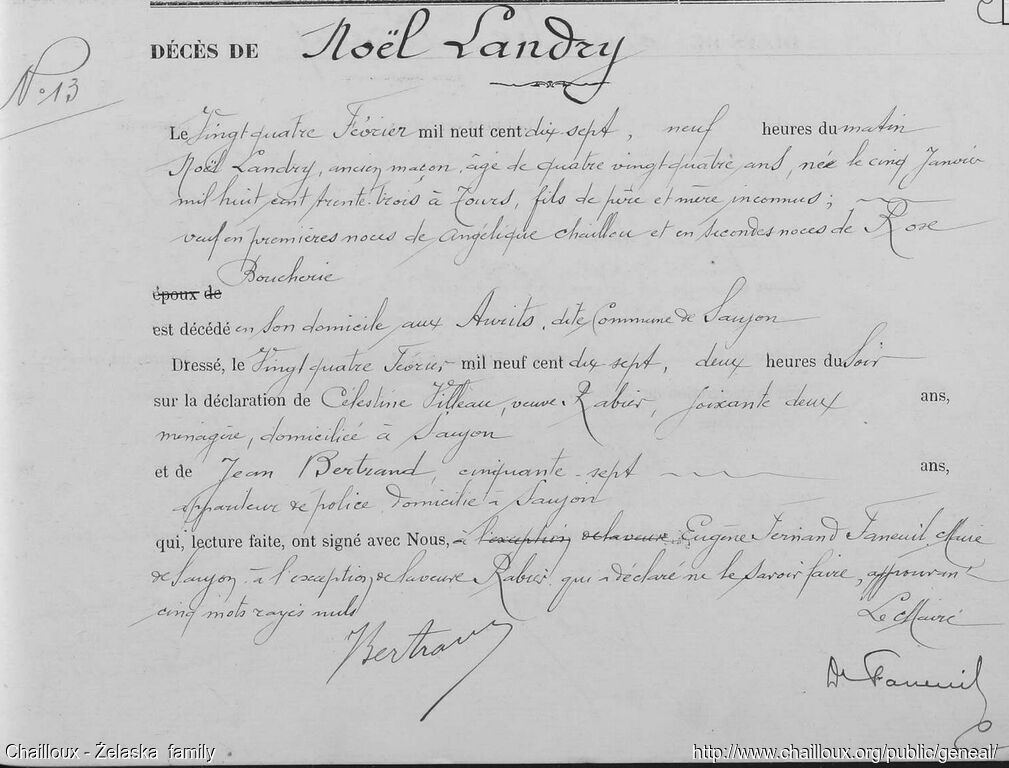 N° 13
DÉCÈS DE Noël Landry
Le Vingt quatre Février mil neuf cent dix sept, neuf heures du matin
Noël Landry, ancien maçon, âgé de quatre vingt quatre ans, née le cinq Janvier
mil huit cent trente-trois à Tours, fils de père et mère inconnus ;
veuf en premières noces de Angélique Chaillou et en secondes noces de Rose
Boucherie
époux de
est décédé en son domicile aux Auvits, dite Commune de Saujon
Dressé, le Vingt quatre Février mil neuf cent dix sept, deux heures du Soir
sur la déclaration de Célestine Villeau, veuve Rabier, soixante deux ans,
ménagère, domiciliée à Saujon
et de Jean Bertrand, cinquante-sept ans,
appariteur de police domicilié à Saujon
qui, lecture faite, ont signé avec Nous, à l'exception de la veuve Eugène Fernand Faneuil, Maire
de Saujon à l'exception de la veuve Rabier qui a déclaré ne le savoir faire, approuvant
cinq mots rayés nuls Le Maire
Bertrand
Dr Faneuil
Chailloux - Żelaska family
http://www.chailloux.org/public/geneal/